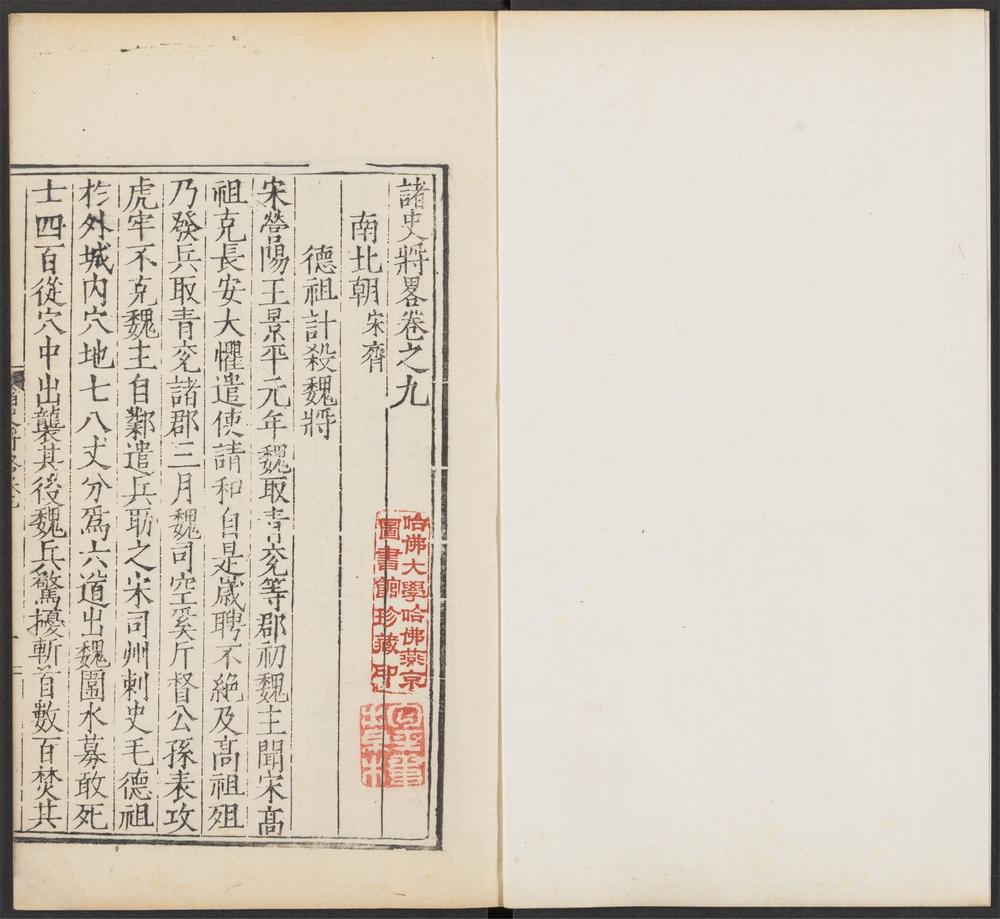 諸史將畧卷之九
南北朝 宋齊
德祖計殺魏將
宋營陽王景平元年魏取青兖等郡初魏主聞宋高
祖克長安大懼遣使請和自是歲聘不絶及高祖殂
乃發兵取青兖諸郡三月魏司空奚斤督公孫表攻
虎牢不克魏主自鄴遣兵助之宋司州刺史毛德祖
於外城内穴地七八丈分爲六道出魏圍外募敢死
士四百從穴中出襲其後魏兵驚擾斬首數百焚其
哈佛大學哈佛燕京
圖書館珍藏印